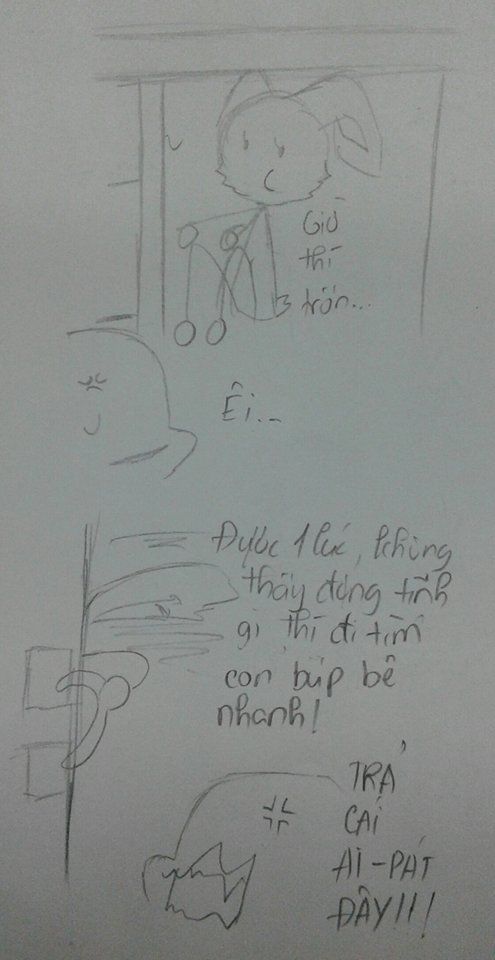 Giờ
thì
trốn...
Êi...
Được 1 lúc, không
thấy động tĩnh
gì thì đi tìm
con búp bê
nhanh!
TRẢ
CÁI
AI-PÁT
ĐÂY!!!